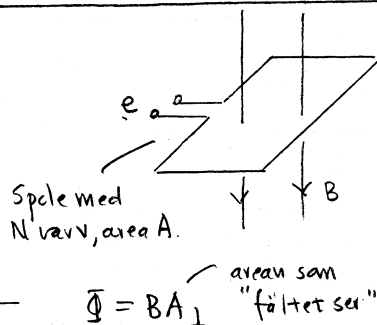 e
Spole med
N varv, area A.
B
arean som
Φ = BA⊥ "fältet ser"